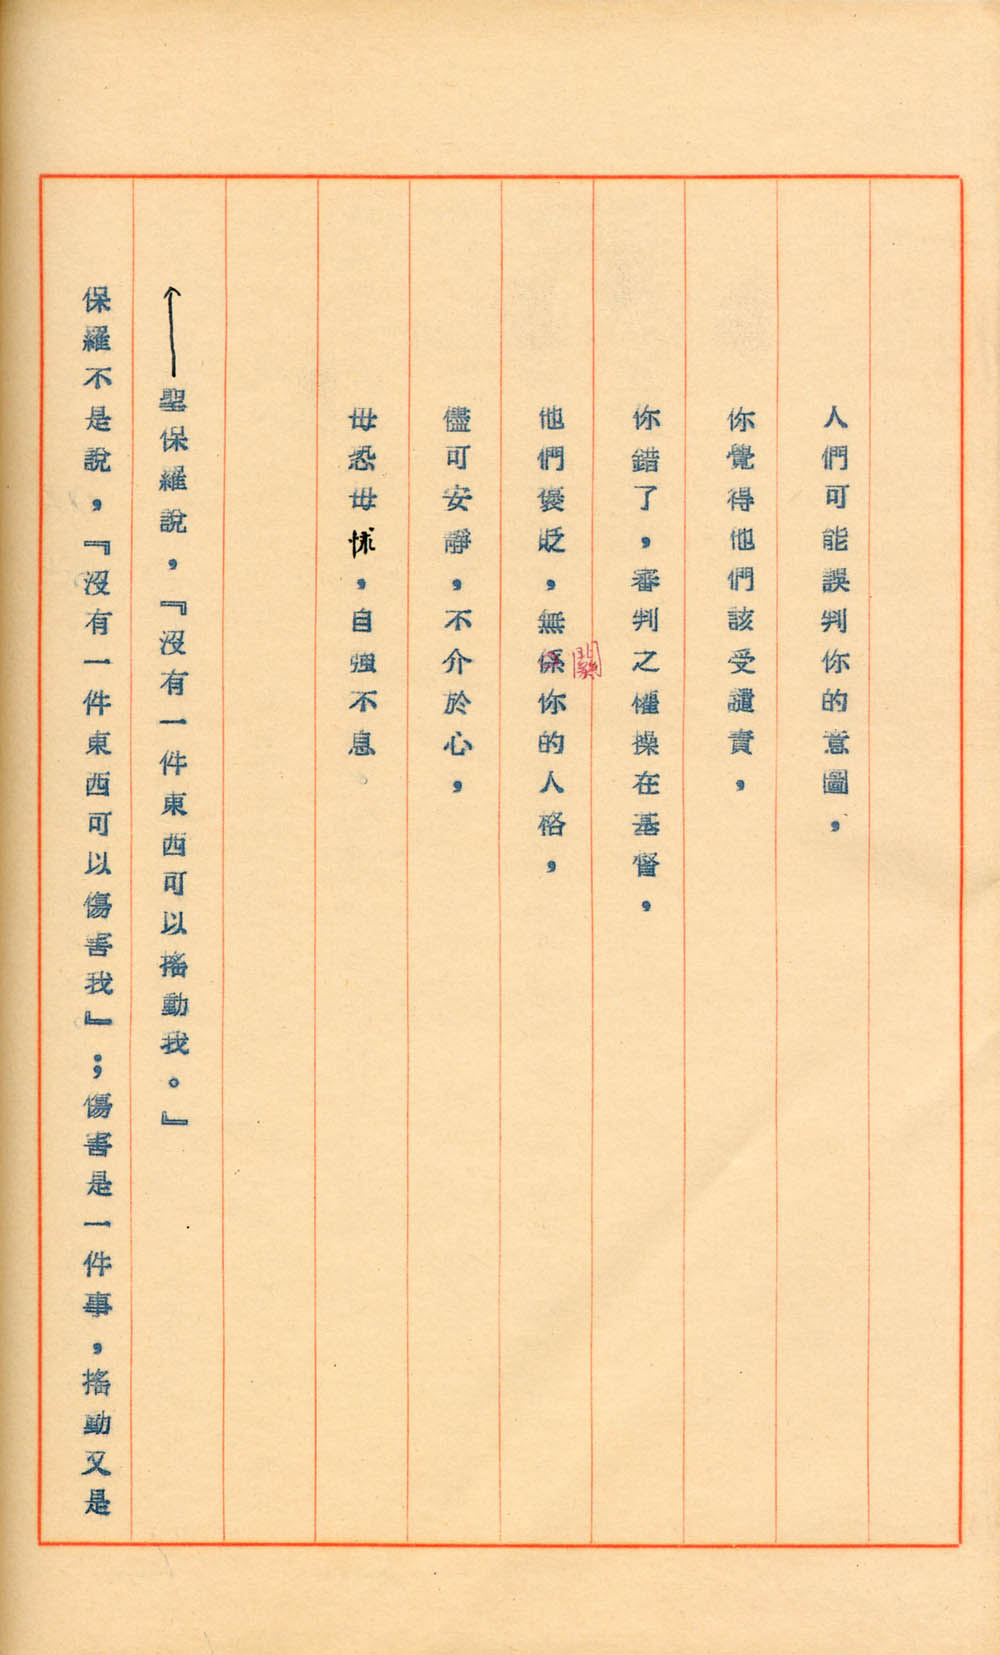 人們可能誤判你的意圖，
你覺得他們該受譴責，
你錯了，審判之權操在基督，
他們褒貶，無係你的人格，
關
儘可安靜，不介於心，
毋恐毋怵，自強不息。
聖保羅說，『沒有一件東西可以搖動我。』
保羅不是說，『沒有一件東西可以傷害我』；傷害是一件事，搖動又是